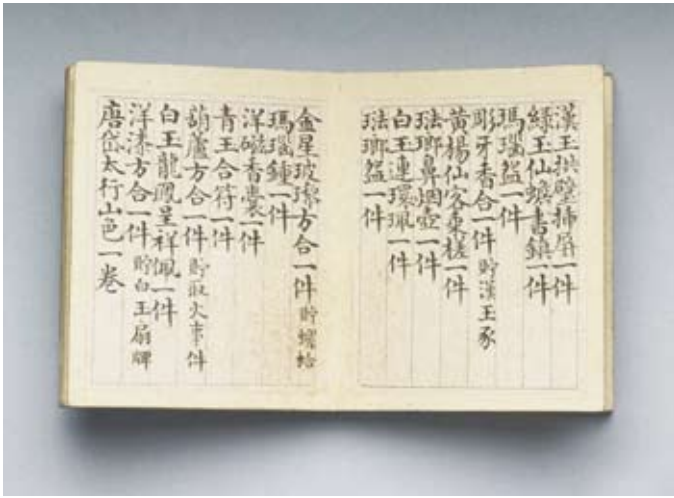 漢玉拱璧插屏一件
綠玉仙蟾書鎮一件
瑪瑙盌一件
彫牙香合一件 貯漢玉豖
黃楊仙客乘槎一件
琺瑯鼻烟壺一件
白玉連環珮一件
琺瑯盌一件
金星玻瓈方合一件 貯蠟蛤
瑪瑙鍾一件
洋磁香囊一件
青玉合符一件
葫蘆方合一件 貯取火事件
白玉龍鳳呈祥佩一件
洋漆方合一件 貯白玉扇牌
唐岱太行山色一卷